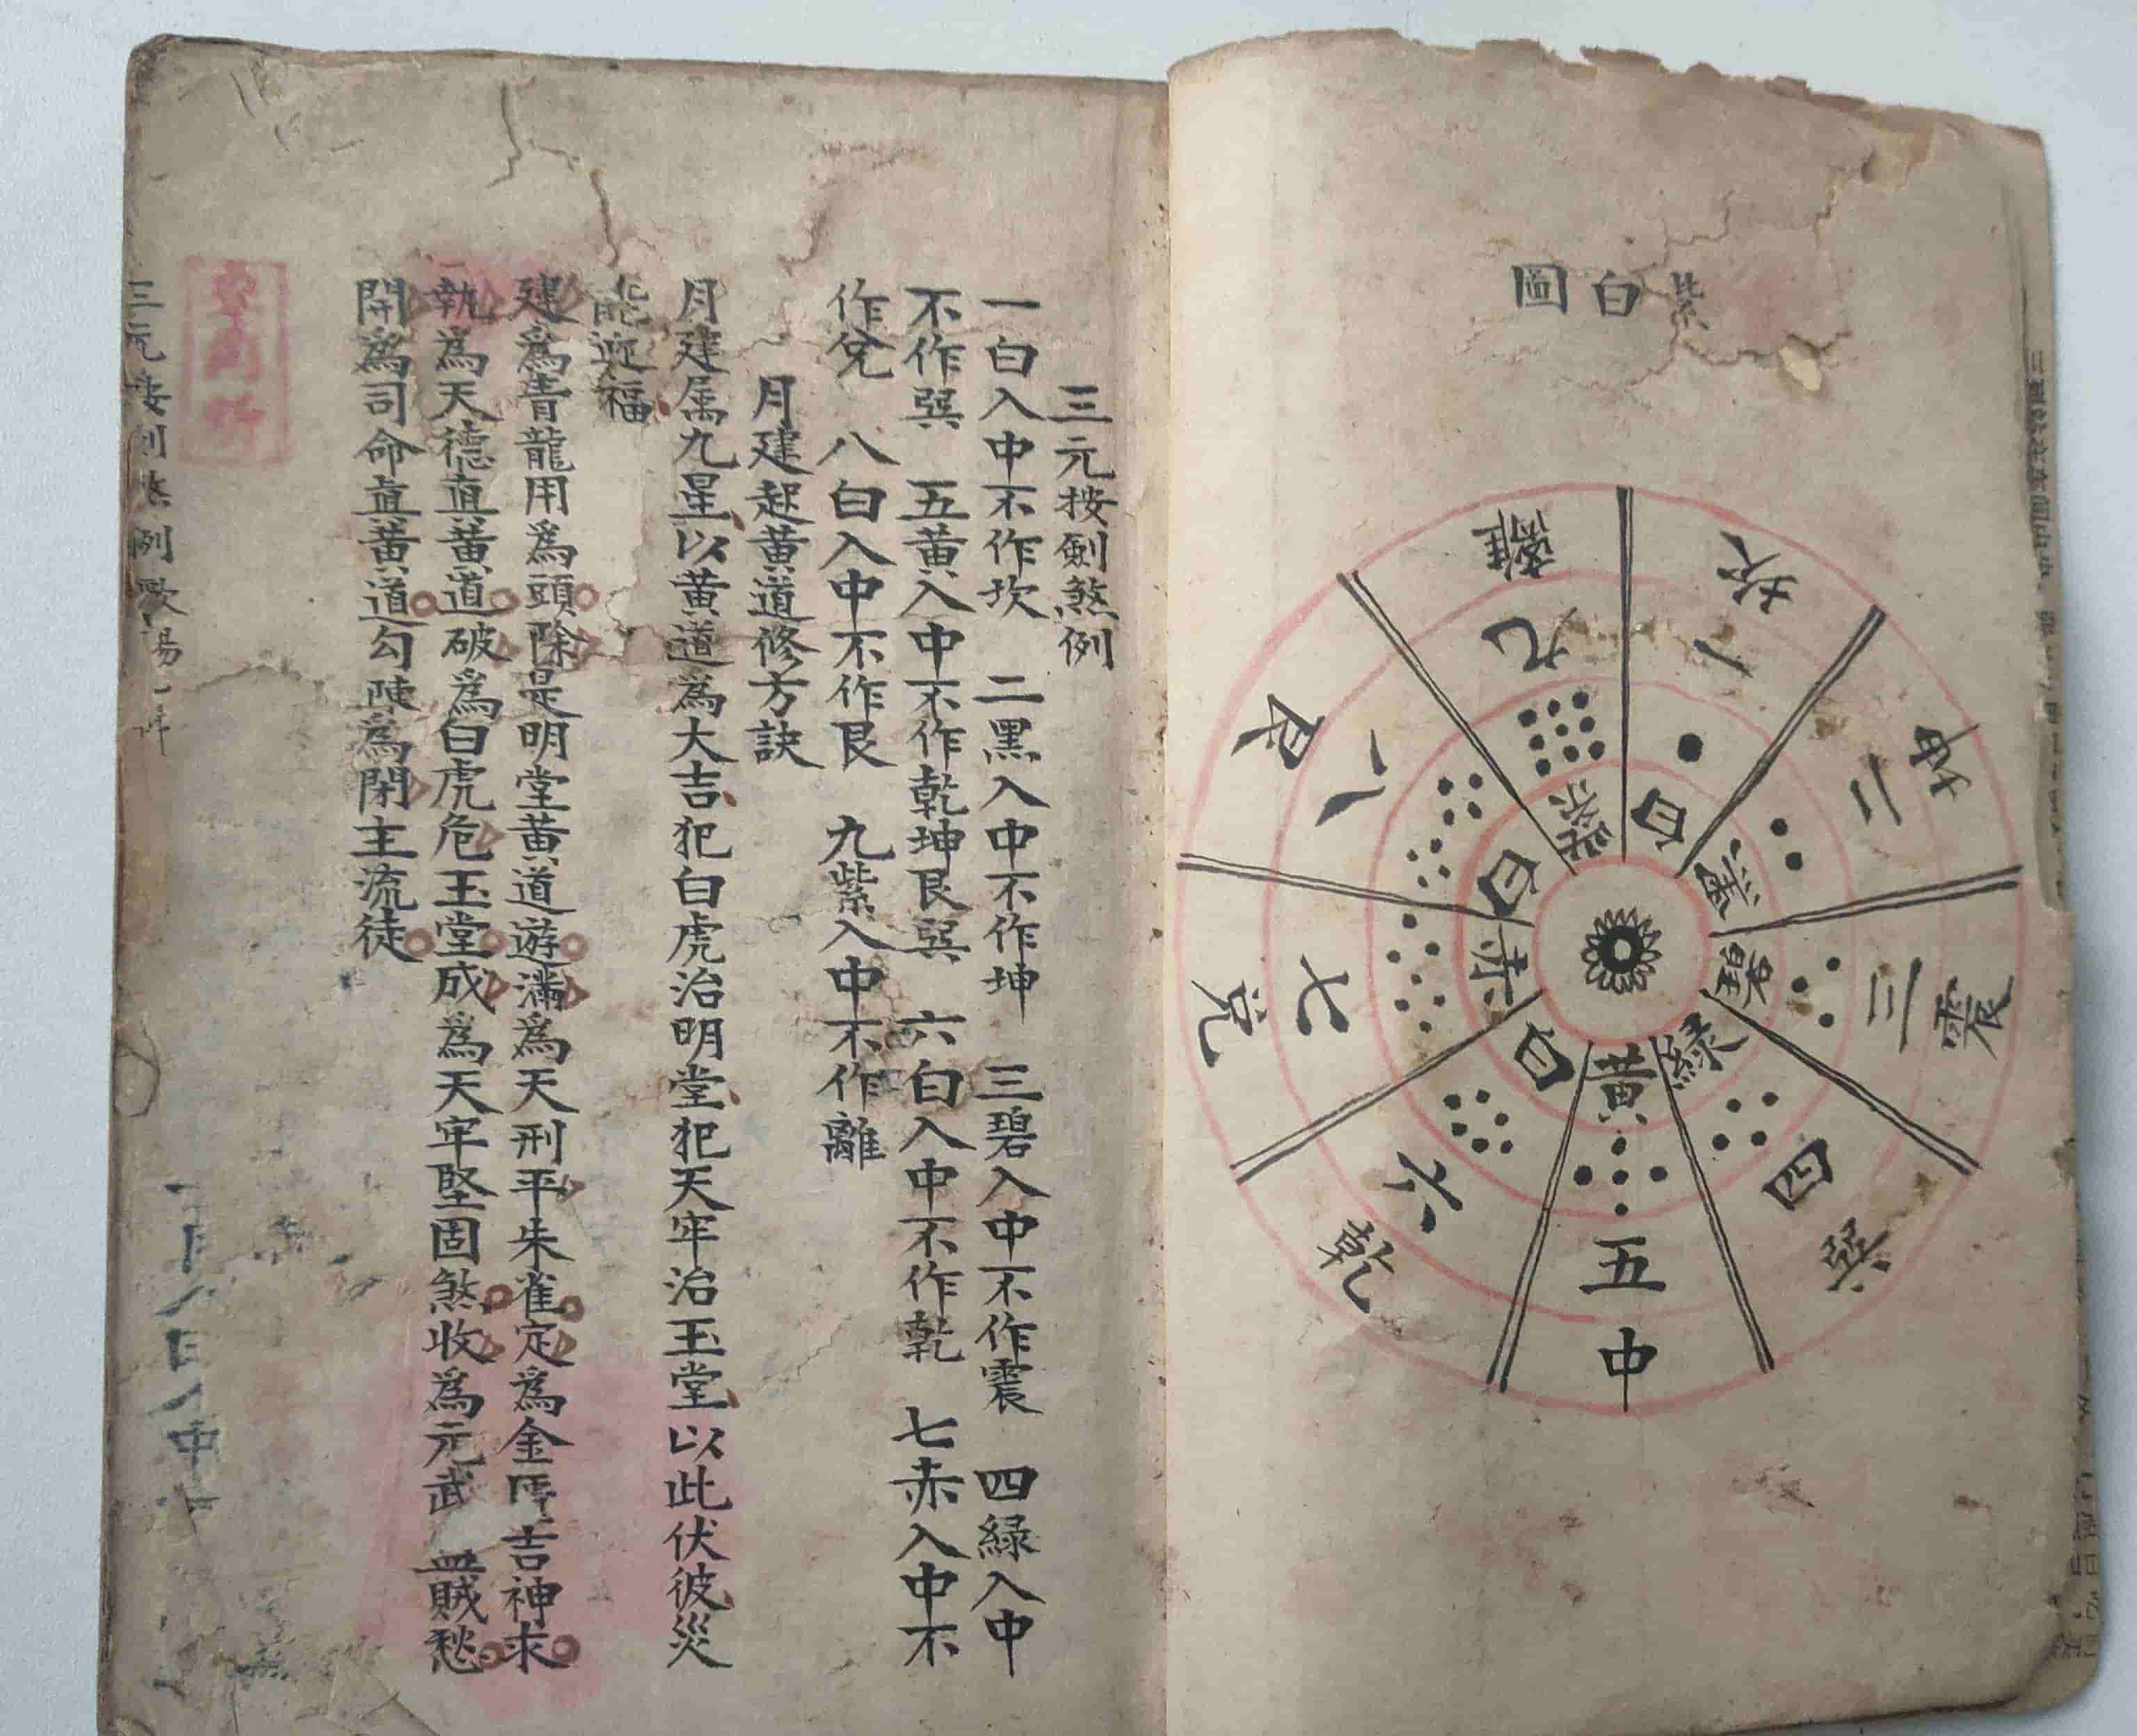 紫白圖
坎
一
白
坤
二
黑
震
三
碧
巽
四
綠
中
五
黃
乾
六
白
兌
七
赤
艮
八
白
離
九
紫
三元按劍煞例
一白入中不作坎 二黑入中不作坤 三碧入中不作震 四綠入中
不作巽 五黃入中不作乾坤艮巽 六白入中不作乾 七赤入中不
作兌 八白入中不作艮 九紫入中不作離
月建起黃道修方訣
月建属九星以黃道為大吉犯白虎治明堂犯天牢治玉堂以此伏彼災
能迎福
建爲青龍用爲頭除是明堂黃道遊滿爲天刑平朱雀定爲金匱吉神求
執爲天德直黃道破爲白虎危玉堂成爲天牢堅固煞收爲元武 賊愁
開爲司命直黃道勾陳爲閉主流徒
三元 例